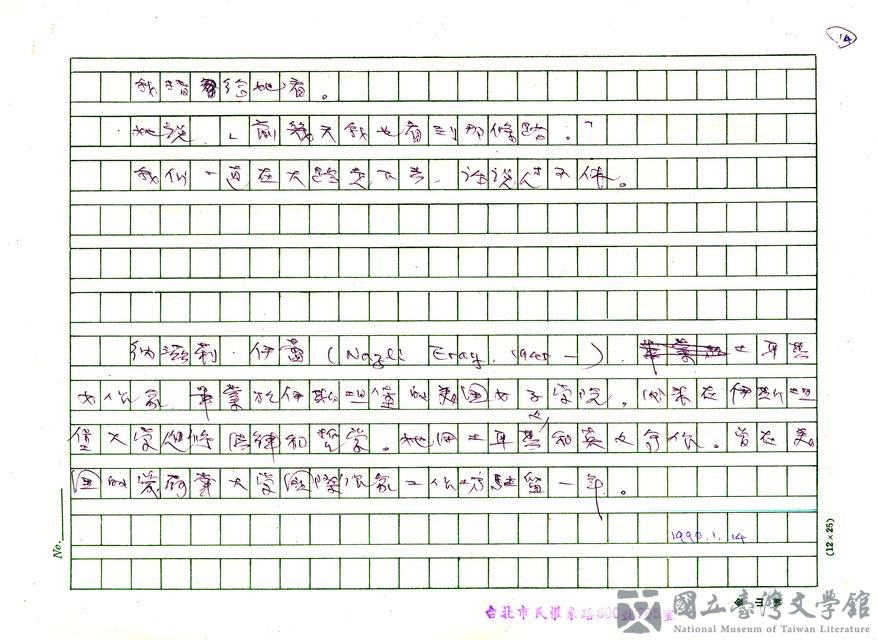 14
我指給她看。
她說，「前幾天我也看到那條路。」
我們一直在大路走下去，談說個不休。
納滋莉·伊蕾（Nazli Eray, 1945—），土耳其
女作家，畢業於伊斯坦堡的美國女子學院，後來在伊斯坦
堡大學進修法律和哲學。她用土耳其文和英文寫作。曾在美
國的愛荷華大學國際作家工作坊駐留一年。
1990.1.14
No.
(12×25)
台北市民權東路
國立臺灣文學館
National Museum of Taiwan Literature